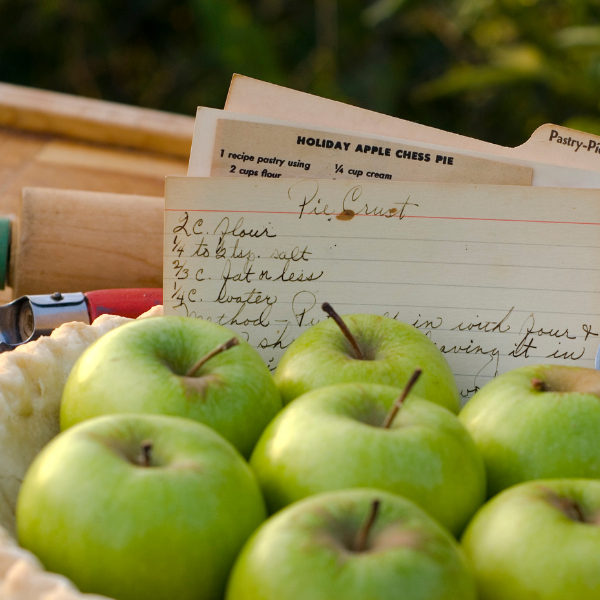 Pastry-Pie
HOLIDAY APPLE CHESS PIE
1 recipe pastry using ¼ cup cream
2 cups flour
Pie Crust
2 C. flour
¼ to ½ tsp. salt
⅔ c. fat n less
¼ C. water
Method - in with flour +
leaving it in